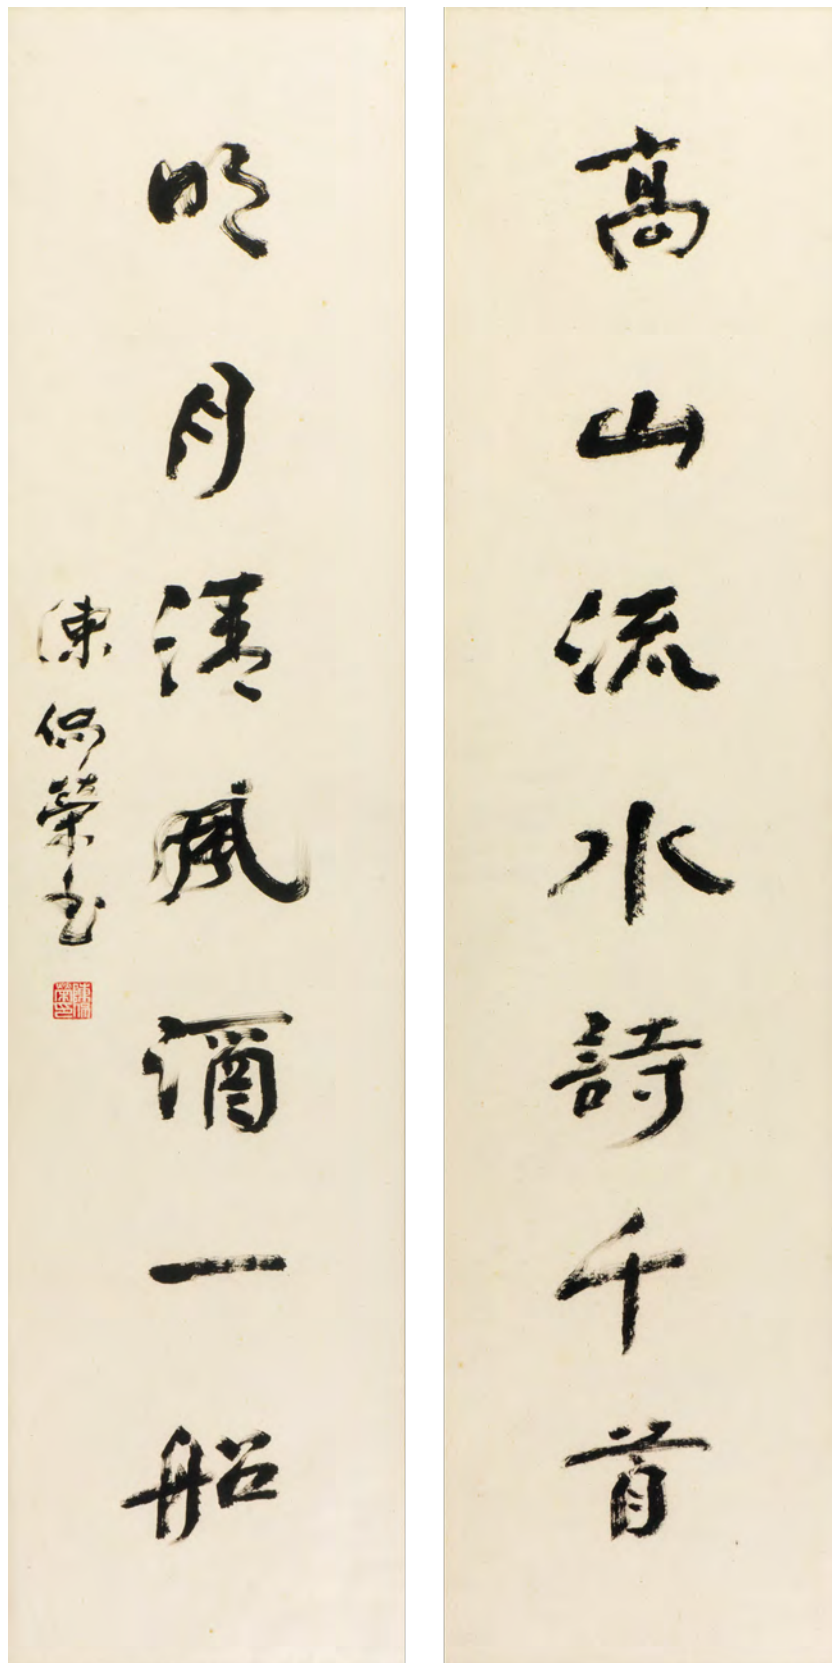 高山流水詩千首
明月清風酒一船
陳佩榮書